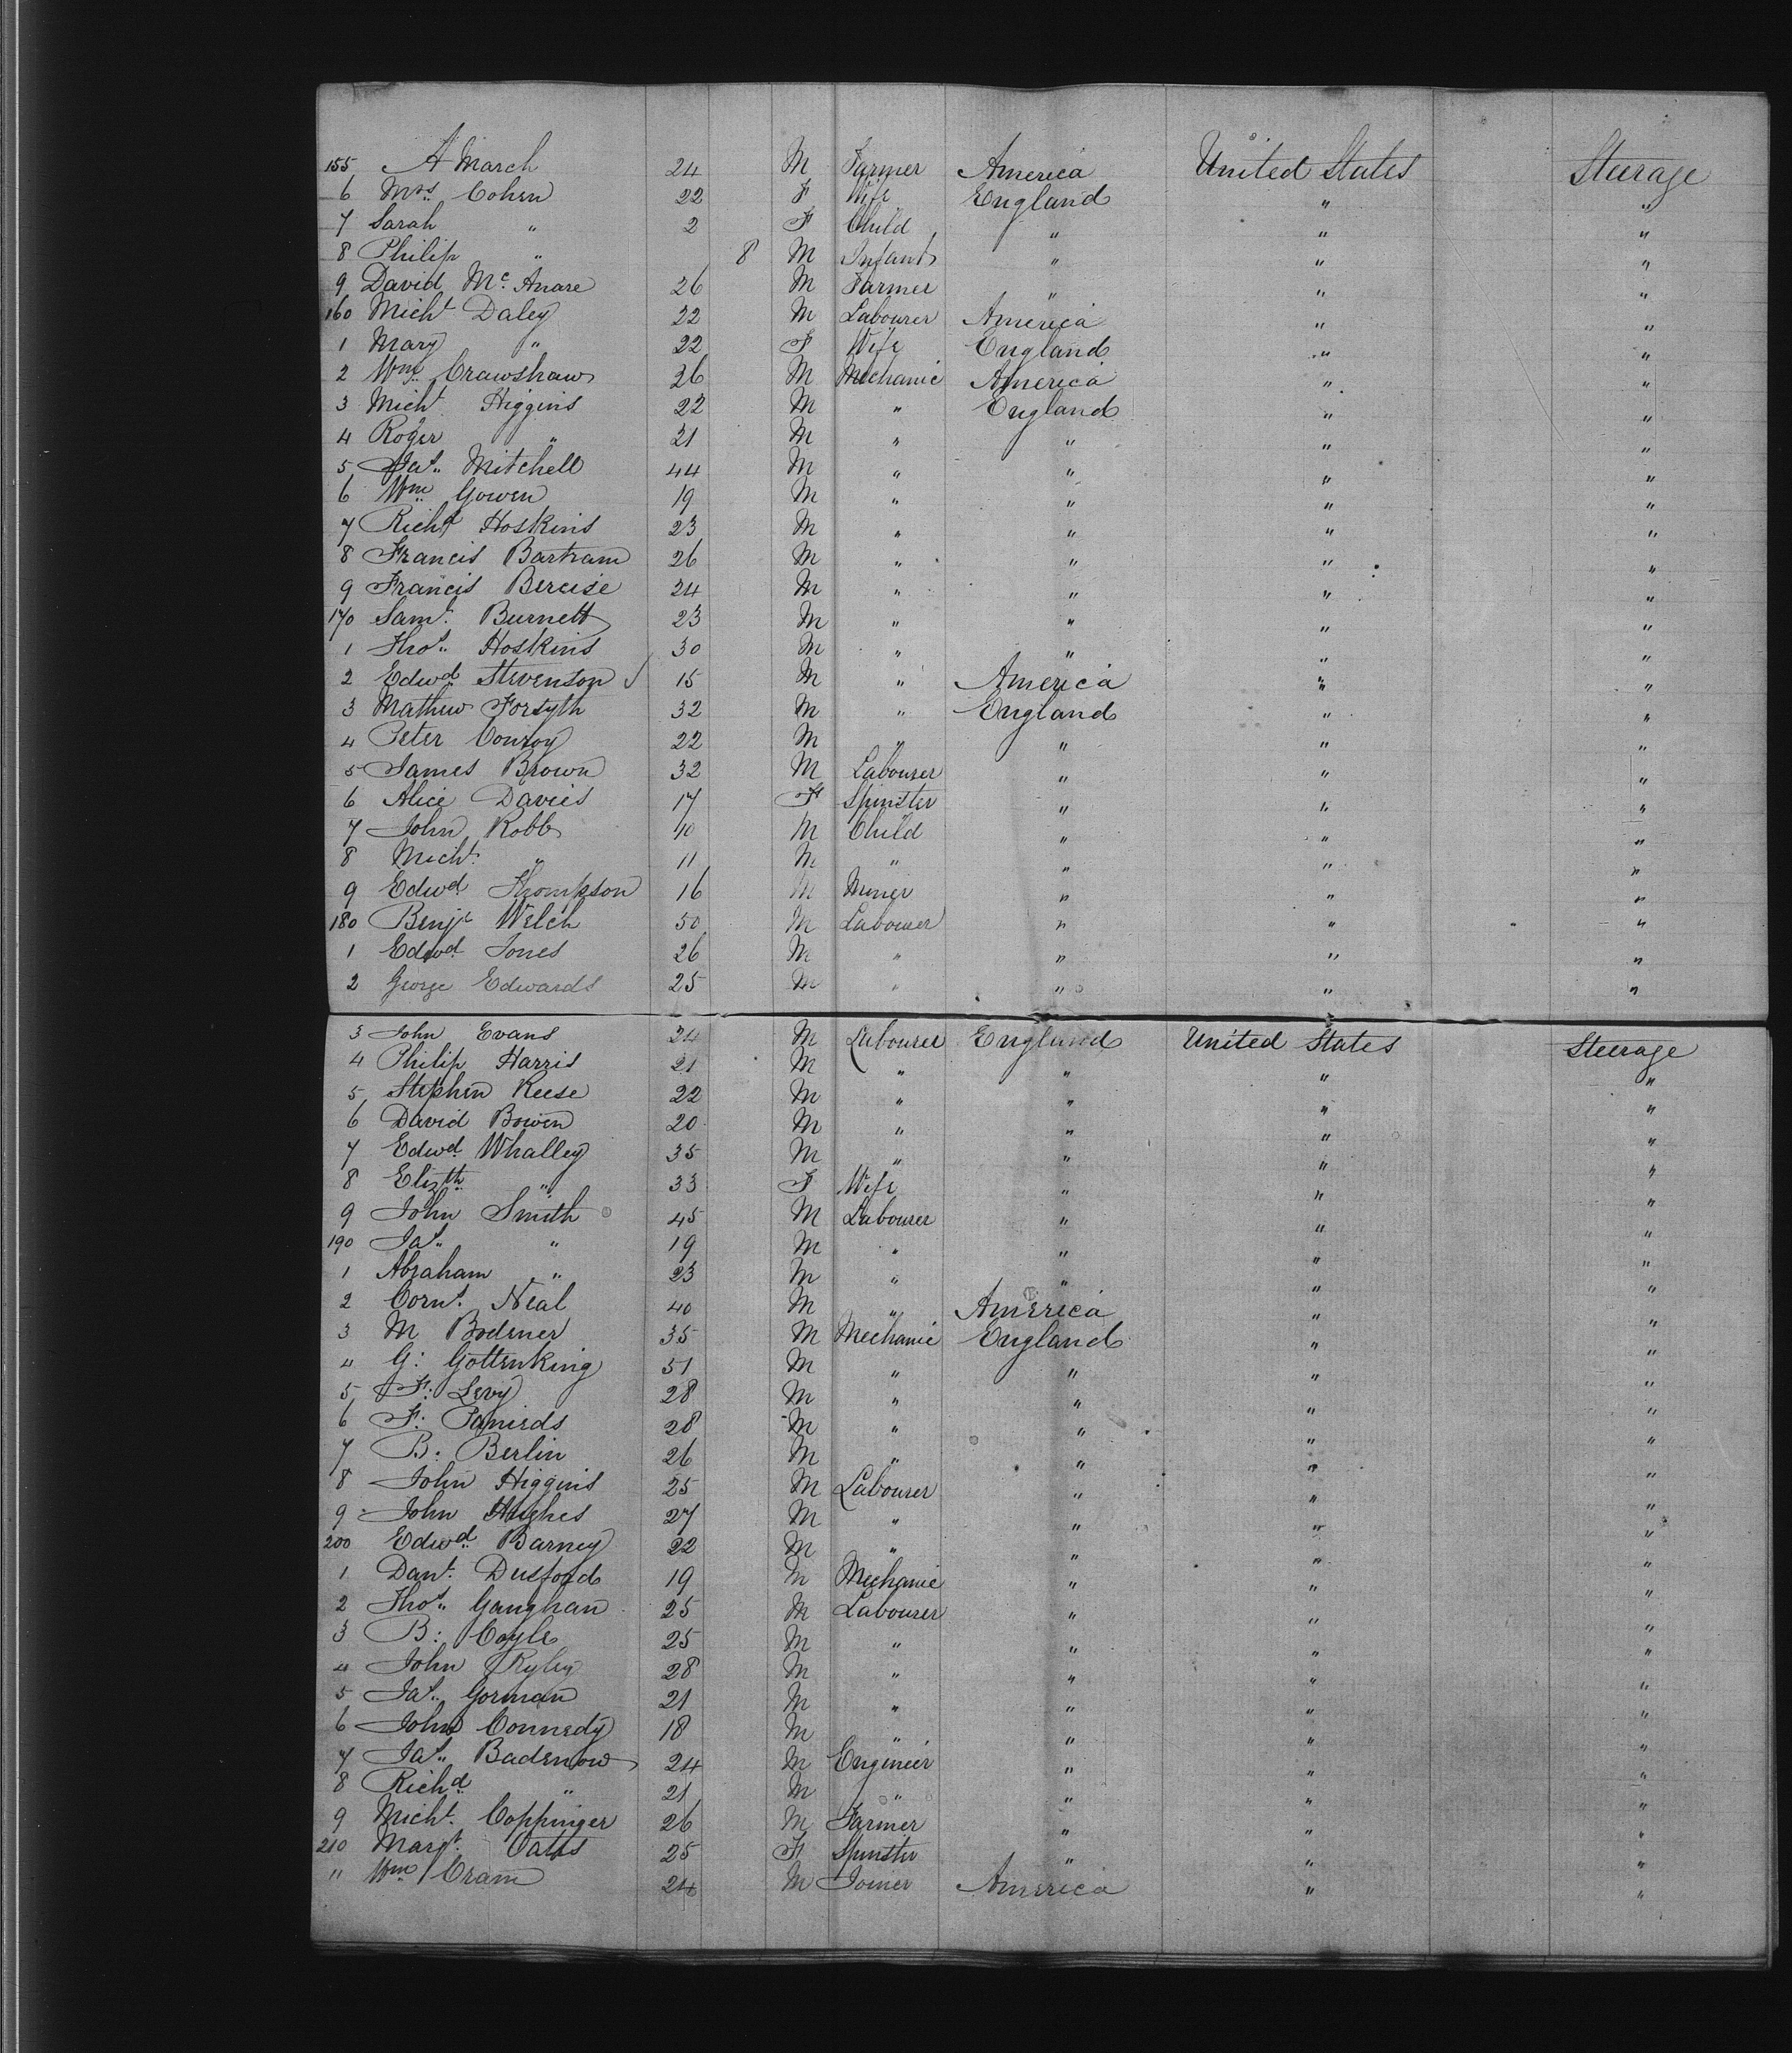 155 A March 24 M Farmer America United States Steerage
6 Mrs. Cohen 22 F Wife England " "
7 Sarah " 2 F Child " " "
8 Philip " 8 M Infant " " "
9 David Mc Anare 26 M Farmer " " "
160 Michl Daley 22 M Labourer America " "
1 Mary " 22 F Wife England " "
2 Wm. Crawshaw 26 M Mechanic America " "
3 Michl Higgins 22 M " England " "
4 Roger " 21 M " " " "
5 Jas. Mitchell 44 M " " " "
6 Wm Gowen 19 M " " " "
7 Richd Hoskins 23 M " " " "
8 Francis Bartram 26 M " " " "
9 Francis Bercise 24 M " " " "
170 Saml. Burnett 23 M " " " "
1 Thos. Hoskins 30 M " " " "
2 Edwd. Stevenson 15 M " America " "
3 Mathew Forsyth 32 M " England " "
4 Peter Conroy 22 M " " " "
5 James Brown 32 M Labourer " " "
6 Alice Davies 17 F Spinster " " "
7 John Robb 40 M Child " " "
8 Michl. " 11 M " " " "
9 Edwd Thompson 16 M Miner " " "
180 Benjn Welch 50 M Labourer " " "
1 Edwd. Jones 26 M " " " "
2 George Edwards 25 M " " " "
3 John Evans 24 M Labourer England United States Steerage
4 Philip Harris 21 M " " " "
5 Stephen Reese 22 M " " " "
6 David Bowen 20 M " " " "
7 Edwd. Whalley 35 M " " " "
8 Elizth. " 33 F Wife " " "
9 John Smith 45 M Labourer " " "
190 Jas. " 19 M " " " "
1 Abraham " 23 M " " " "
2 Corns. Neal 40 M " America " "
3 M Bodener 35 M Mechanic England " "
4 G: Gottenking 51 M " " " "
5 F: Levy 28 M " " " "
6 F: 28 M " " " "
7 B: Berlin 26 M " " " "
8 John Higgins 25 M Labourer " " "
9 John Hughes 27 M " " " "
200 Edwd. Barney 22 M " " " "
1 Danl. 19 M Mechanic " " "
2 Thos. Gaughan 25 M Labourer " " "
3 B: Coyle 25 M " " " "
4 John Ryley 28 M " " " "
5 Jas. Gorman 21 M " " " "
6 John Connedy 18 M " " " "
7 Jas. Badenow 24 M Engineer " " "
8 Richd " 21 M " " " "
9 Michl. Coppinger 26 M Farmer " " "
210 Margt. Oatts 25 F Spinster " " "
" Wm Cram 24 M Joiner America " "